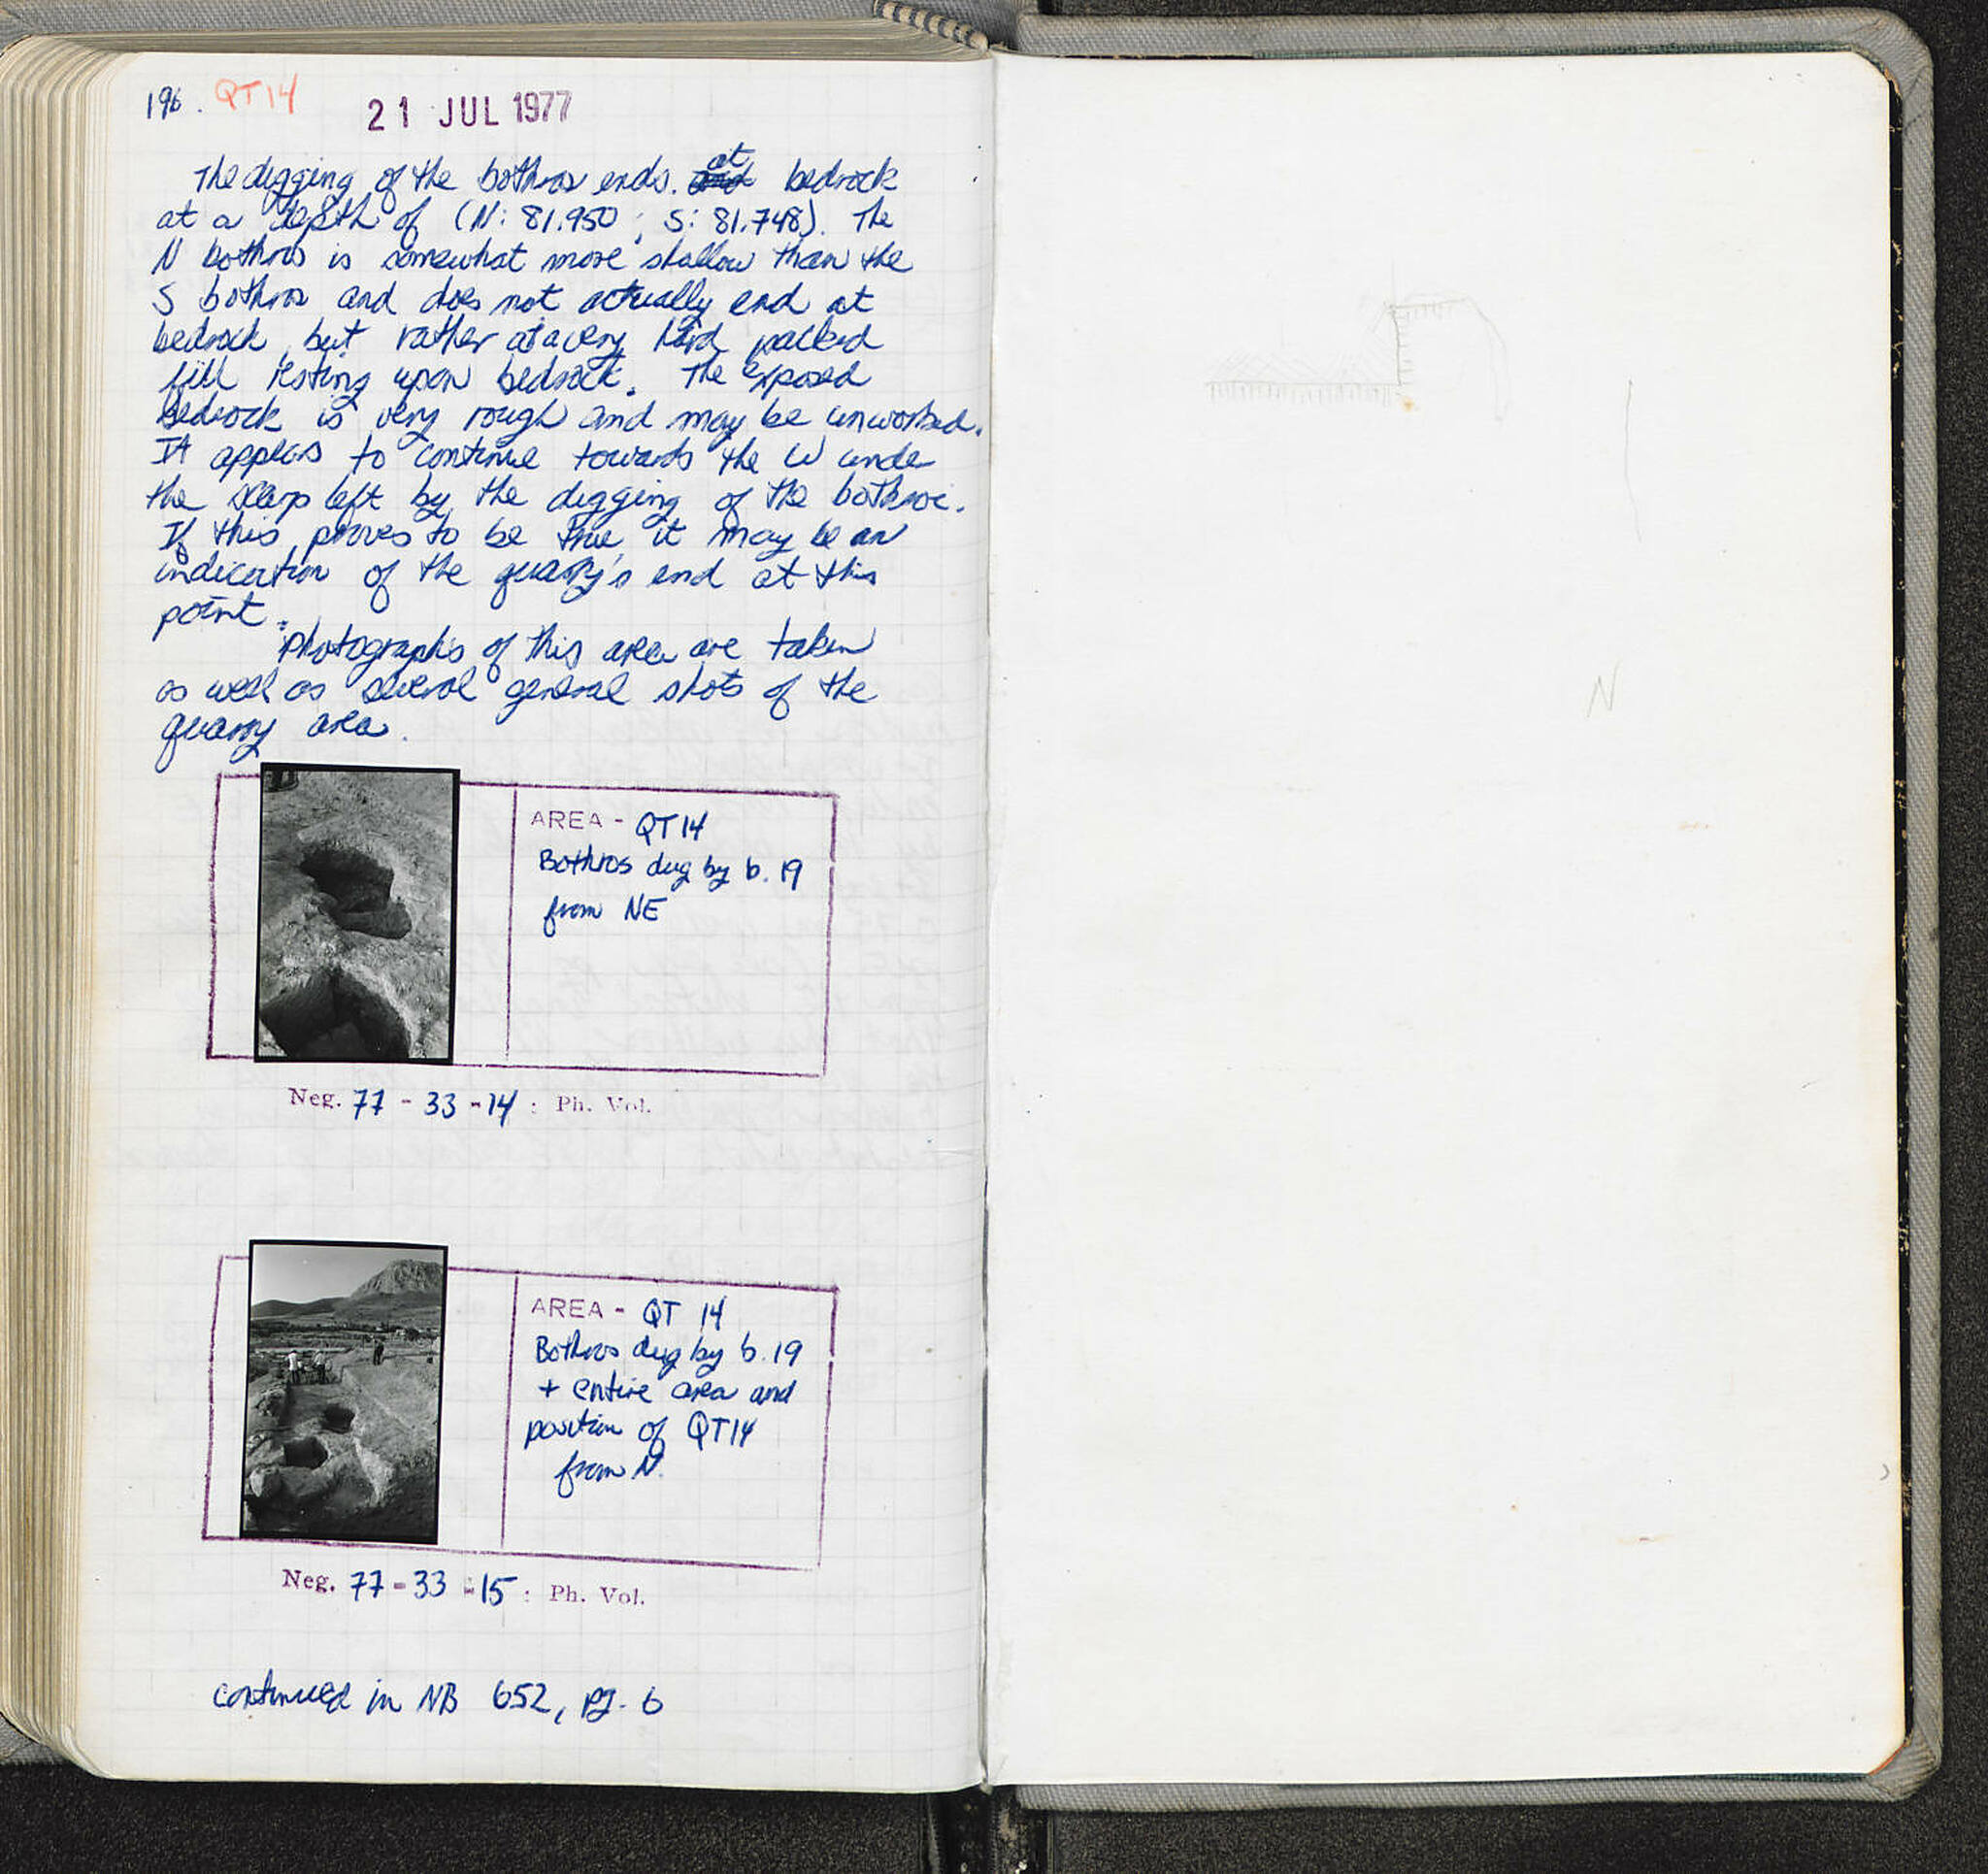 196. QT14
21 JUL 1977
The digging of the bothros ends. at bedrock
at a depth of (N: 81.950 ; S: 81.748). The
N bothros is somewhat more shallow than the
S bothros and does not actually end at
bedrock, but rather at a very hard packed
fill resting upon bedrock. The exposed
bedrock is very rough and may be unworked.
It appears to continue towards the W under
the scarp left by the digging of the bothroi.
If this proves to be true, it may be an
indication of the quarry's end at this
point.
Photographs of this area are taken
as well as several general shots of the
quarry area.
AREA - QT14
Bothros dug by b. 19
from NE
Neg. 77 - 33 - 14 : Ph. Vol.
AREA - QT 14
Bothros dug by b. 19
+ entire area and
position of QT14
from N.
Neg. 77 - 33 - 15 : Ph. Vol.
continued in NB 652, pg. 6
N